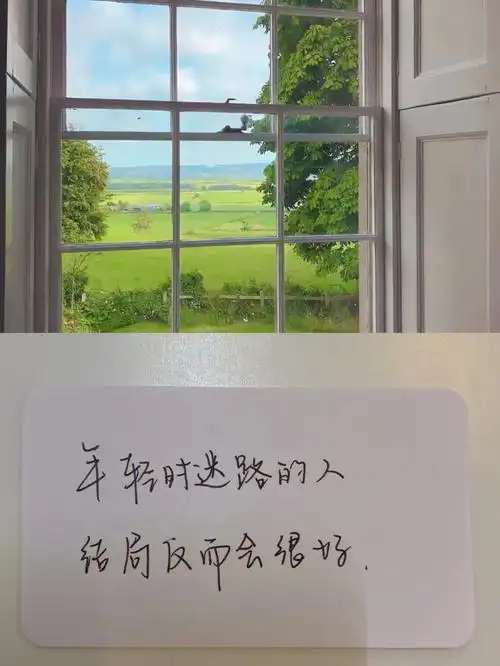 年轻时迷路的人
结局反而会很好.